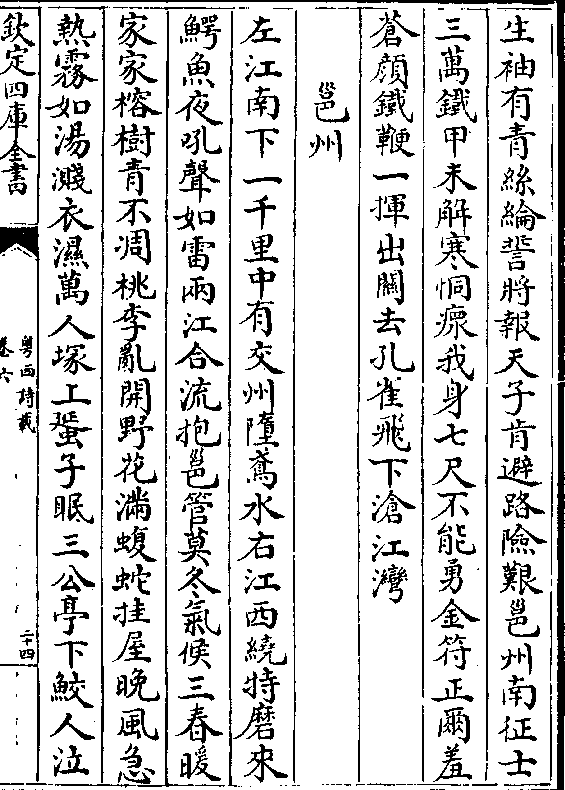 生袖有青絲綸誓將報天子肯避路險艱邕州南征士
三萬鐵甲未解寒恫瘝我身七尺不能勇金符正爾羞
蒼顔鐵鞭一揮出關去孔雀飛下滄江灣
邕州
左江南下一千里中有交州墮鳶水右江西繞特磨來
鰐魚夜吼聲如雷兩江合流抱邕管莫冬氣候三春暖
家家榕樹青不凋桃李亂開野花滿蝮蛇挂屋晚風急
熱霧如湯濺衣濕萬人塚上蜑子眠三公亭下鮫人泣
欽定四庫全書
粤西詩載
卷六
二十四